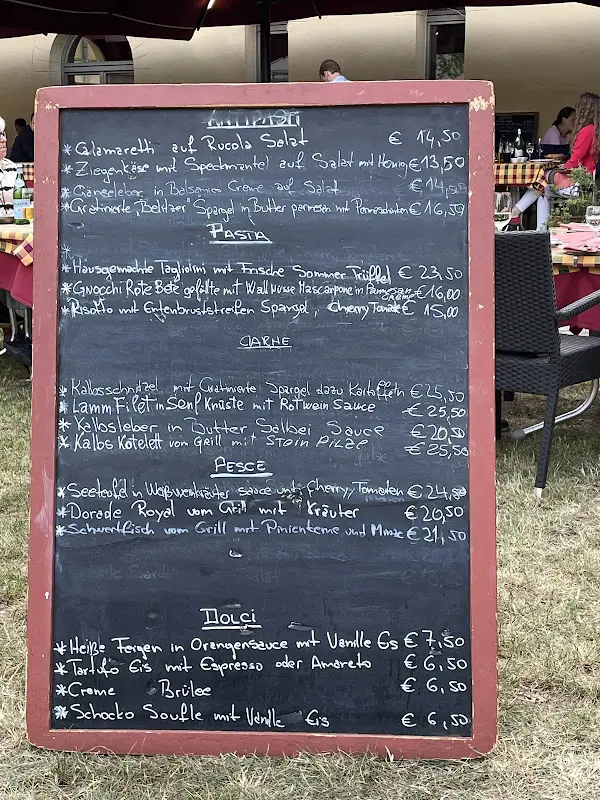 ANTIPASTI
* Calamaretti auf Rucola Salat € 14,50
* Ziegenkäse mit Speckmantel auf Salat mit Honig € 13,50
* Gänseleber in Balsamico Creme auf Salat € 14,50
* Gratinierte "Belitzer" Spargel in Butter parmesan mit € 16,50
PASTA
*
* Hausgemachte Tagliolini mit Frische Sommer Trüffel € 23,50
* Gnocchi Rote Bete gefüllte mit Wallnusse Mascarpone in Parmesan CREME € 16,00
* Risotto mit Entenbruststreifen Spargel, Cherry Tomate € 15,00
CARNE
* Kalbsschnitzel mit Gratinierte Spargel dazu Kartoffeln € 25,50
* Lamm Filet in Senf Kruste mit Rotwein Sauce € 25,50
* Kalbsleber in Butter Salbei Sauce € 20,50
* Kalbs Kotelett vom Grill mit Stein Pilze € 25,50
PESCE
* Seeteufel in Weißweinkräuter sauce und Cherry Tomaten € 24,50
* Dorade Royal vom Grill mit Kräuter € 20,50
* Schwertfisch vom Grill mit Pinienkerne und € 21,50
DOLCI
* Heiße Fergen in Orangensauce mit Vanille Eis € 7,50
* Tartufo Eis mit Espresso oder Amareto € 6,50
* Creme Brülee € 6,50
* Schocko Soufle mit Vanille Eis € 6,50